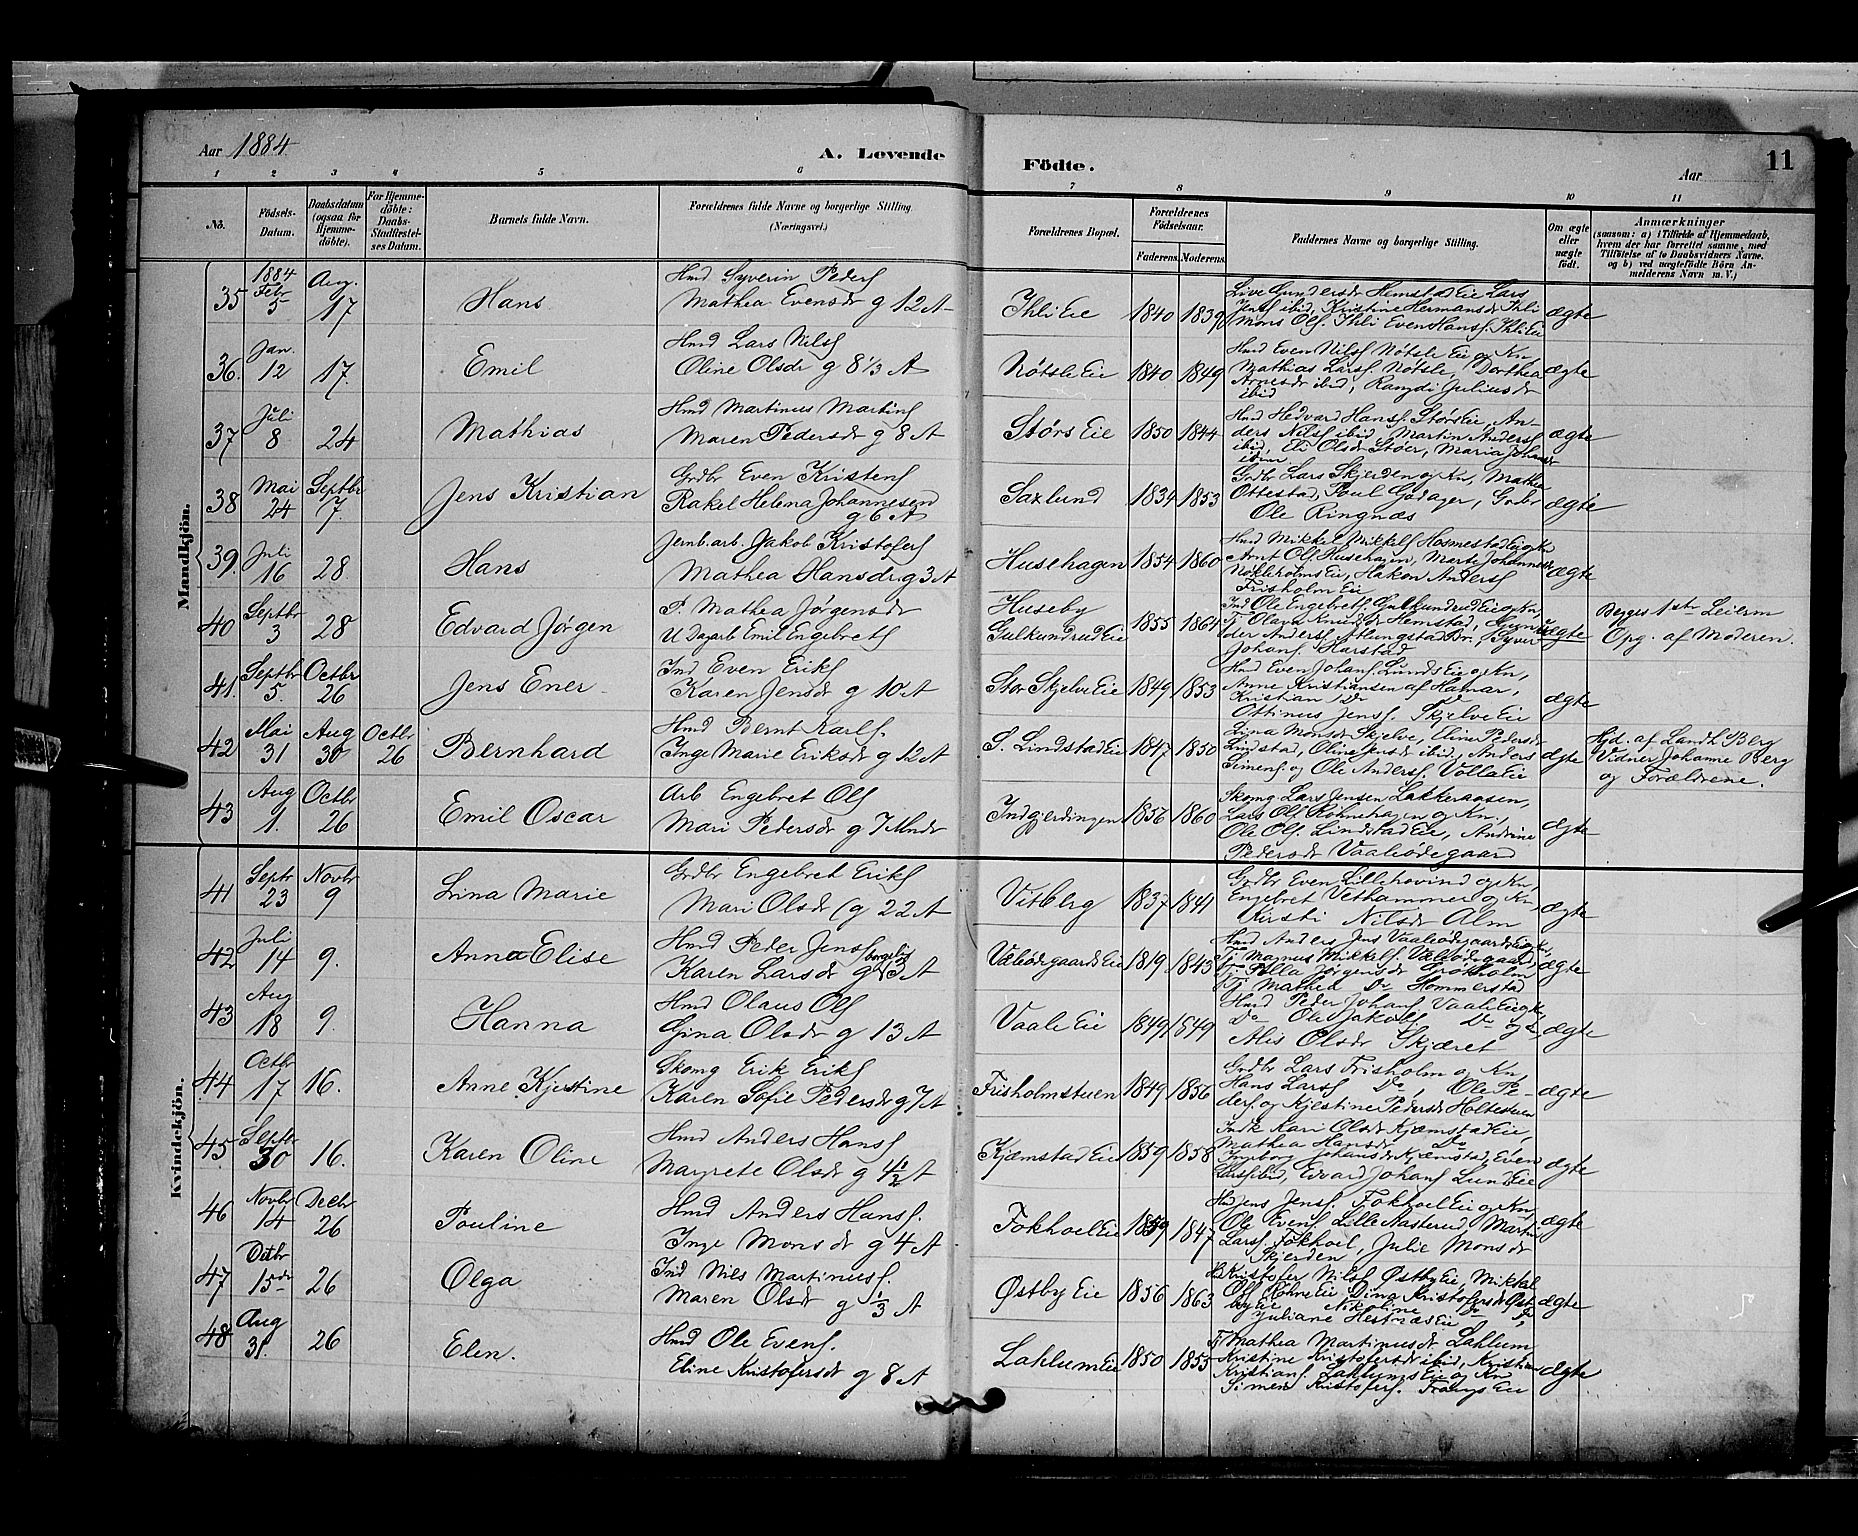 Aar 1884 A. Levende Födte. Aar 11
1 2 3 4 5 6 7 8 9 10 11
Nö.
Födsels-Datum.
Daabsdatum (ogsaa for Hjemmedöbte).
For Hjemmedöbte: Daabs-Stadfæstelses Datum.
Barnets fulde Navn.
Forældrenes fulde Navne og borgerlige Stilling. (Næringsvei.)
Forældrenes Bopæl.
Forældrenes Födselsaar.
Faderens. Moderens.
Faddernes Navne og borgerlige Stilling.
Om ægte eller uægte födt.
Anmærkninger
(saasom: a) i Tilfælde af Hjemmedaab, hvem der har forrettet samme, med Tilföielse af to Daabsvidners Navne. og b) ved uægtefödte Börn Anmelderens Navn m. V.)
Mandkjön.
35 1884 Febr 5 Aug. 17 Hans
Hmd Syverin Peders
Mathea Evensdr g 12 A
Ihli Eie 1840 1839
Live Gundersdr Hemstad Eie Lars
Jens ibid, Kristine Hermansdr Ihli
Mons Ols. Ihli Even Hans. Ihli Eie
ægte
36. Jan. 12 17. Emil
Hmd Lars Nils
Oline Olsdr g 8 1/3 A
Nøtsle Eie 1840 1849
Hmd Even Nils Nøtsle Eie og Kn,
Mathias Lars Nøtsle, Dorthea
Arnesdr ibid, Rangdi Juliusdr
ibid
ægte
37 Juli 8 24 Mathias
Hmd Martinus Martins
Maren Pedersdr g 8 A
Størs Eie 1850 1844
Hmd Hedvard Hans. Størs Eie, An-
ders Nils ibid, Martin Anders
ibid, Eli Olsdr Støer, Maria Johansdr
ibim
ægte
38 Mai 24 Septbr 7. Jens Kristian
Grdbr Even Kristens
Rakel Helena Johannesen
g 6 A
Saxlund 1834 1853
Grdbr Lars Skjerden og Kn, Mathea
Ottestad, Poul Godager, Grdbr
Ole Ringnæs
ægte
39. Juli 16 28 Hans
Jernb.arb. Jakob Kristofers
Mathea Hansdr. g 3 A
Husehagen 1854 1860
Hmd Mikkel Mikkels Hosmestad Eie og Kn
Arnt Ols Husehagen, Marte Johannesdr
Nøkleholms Eie, Hakon Anders
Frisholm Eie
ægte
40 Septbr 3 28 Edvard Jørgen
P. Mathea Jørgensdr
U Dagarb Emil Engebrets
Huseby
Gulkundrud Eie 1855 1864
Ind Ole Engebrets. Gulkundrud Eie og Kn,
Tj Olava Knudsdr Hemstad,
der Anders. Atlungstad Br. Syver
Johans. Harstad
uægte
Begges 1ste Leierm
Opg. af Moderen.
41. Septbr 5. Octbr 26 Jens Ener
Ind Even Eriks
Karen Jensdr g 10 A
Stor Skjelve Eie 1849 1853
Hmd Even Johans. Lunds Eie og Kn,
Anne Kristiansen af Hamar,
Kristian Do Do
Ottinus Jens. Skjelve Eie
ægte
42 Mai 31 Aug 30 Octbr 26 Bernhard
Hmd Bernt Karls.
Inge Marie Eriksdr g 12 A
S. Lindstad Eie 1847 1850
Lina Monsdr Skjelve, Eline Pedersdr
Lindstad, Oline Jensdr ibid, Anders
Simens. og Ole Anders. Volla Eie
ægte
Hjd. af Landh Berg
Vidner Johanne Berg
og Forældrene.
43 Aug 1. Octbr 26 Emil Oscar
Arb Engebret Ols
Mari Pedersdr g 7 Mndr
Indgjerdingen 1856 1860
Skomg Lars Jensen Lakkeraasen,
Lars Ols Røhnehagen og Kn,
Ole Ols. Lindstad Eie, Andrine
Pedersdr Vaaleødegaard
ægte
Kvindekjön.
41 Septr 23 Novbr 9 Lina Marie
Grdbr Engebret Eriks
Mari Olsdr (g 22 A
Vitberg 1837 1841
Grdbr Even Lillehovind og Kn,
Engebret Vethammer og Kn,
Kirsti Nilsdr Alm
ægte
42 Juli 14 9. Anna Elise
Hmd Peder Jens borgelig
Karen Larsdr g 3 A
Valiødegaards Eie 1819 1843
Hmd Anders Jens Vaaleødegaards Eie og Kn,
Tj Magnus Mikkels. Valiødegaard,
Tj Pella Jørgensdr Snøkholm
Tj Mathea Do Hommerstad
ægte
43 Aug 18 9. Hanna
Hmd Olaus Ols
Gina Olsdr g 13 A
Vaale Eie 1849 1849
Hmd Peder Johans Vaale Eie og Kn
Do Ole Jakobs Do og
Alis Olsdr Skjæret
ægte
44 Octbr 17 16. Anne Kjestine
Skomg Erik Eriks
Karen Sofie Pedersdr g 7 A
Frisholmstuen 1849 1856
Grdbr Lars Frisholm og Kn,
Hans Lars Do, Ole Pe-
ders. og Kjestine Pedersdr Holtesteren
ægte
45. Septbr 30 16. Karen Oline
Hmd Anders Hans
Margrete Olsdr g 4 1/2 A
Kjæmstad Eie 1859 1858
Indk Kari Olsdr Kjæmstad Eie,
Mathea Hansdr Do
Ingeborg Johansdr Kjæmstad, Even
Lars ibid, Edvard Johans Lund Eie
ægte
46 Novbr 14 Decbr 26 Pouline
Hmd Anders Hans.
Inge Monsdr g 4 A
Fokhoel Eie 1859 1847
Hd Jens Jens. Fokhoel Eie og Kn,
Ole Evens Lille Nasterud, Martin
Lars. Fokhoel, Julie Monsdr
Skjerden
ægte
47 Octbr 15de 26 Olga
Ind Nils Martinus.
Maren Olsdr g 1/3 A
Østby Eie 1856 1863
Hd Kristofer Nils Østby Eie, Mikkel
Ols Røhne Eie Dina Kristofersdr Øst
by Eie Nikoline Do Do,
Juliane Hestnæs Eie
ægte
48 Aug 31. 26 Elen.
Hmd Ole Evens.
Eline Kristofersdr g 8 A
Lahlum Eie 1850 1855
Tj Mathea Martinusdr Lahlum
Kristine Kristofersdr ibid, Kristian
Kristians. Lahlums Eie og Kn
Simen Kristofers. Frangs Eie
ægte